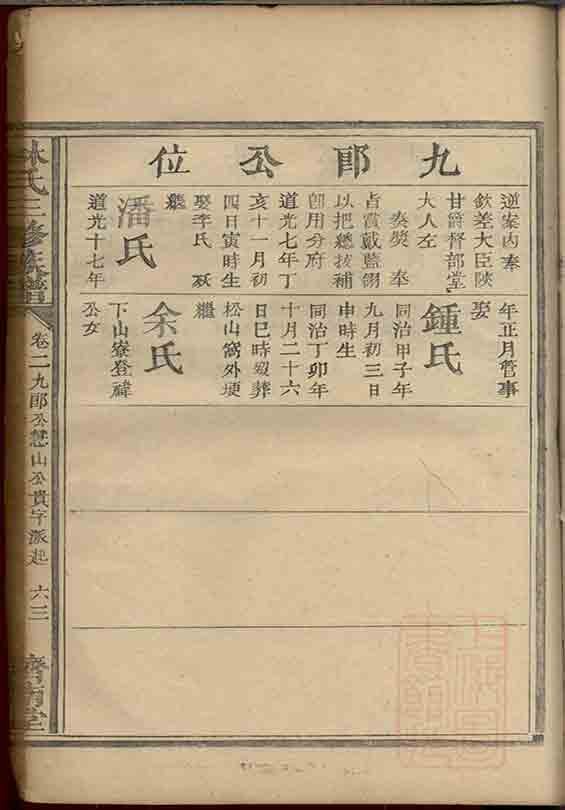 九郎公位
逆案内奉
欽差大臣陝
甘爵督部堂
大人左
奏奨奉
占賞戴藍翎
以把總拔補
卽用分府
道光七年丁
亥十一月初
四日寅時生
娶李氏 歿
繼
潘氏
道光十七年
年正月管事
娶
鍾氏
同治甲子年
九月初三日
申時生
同治丁卯年
十月二十六
日巳時歿葬
松山窩外埂
繼
余氏
下山寮登禕
公女
林氏三修族譜
卷二九郎公慧山公貴字派起
六三
濟南堂